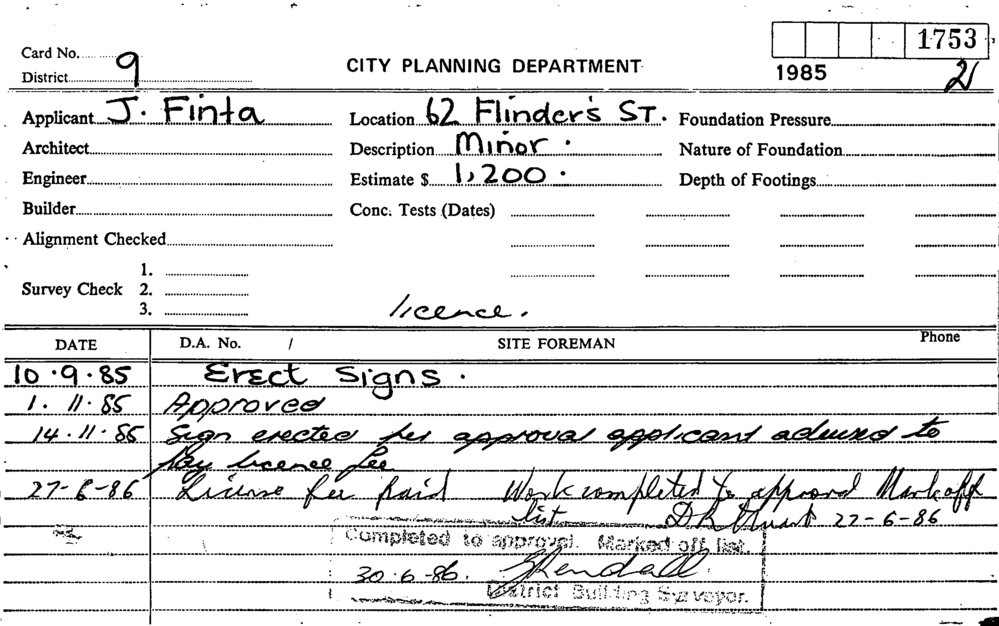 Card No. 9
District
CITY PLANNING DEPARTMENT
1753
1985
2
Applicant J. Finta
Location 62 Flinder's ST.
Foundation Pressure
Architect
Description Minor.
Nature of Foundation
Engineer
Estimate $ 1,200.
Depth of Footings
Builder
Conc. Tests (Dates)
Alignment Checked
1.
Survey Check 2.
3.
licence.
DATE D.A. No. / SITE FOREMAN Phone
10.9.85 Erect Signs.
1.11.85 Approved
14.11.85 Sign erected per approval applicant advised to
pay licence fee
27-6-86 License fee paid Work completed to approval Mark off
list 27-6-86
Completed to approval. Marked off list.
30.6.86. Kendall
District Building Surveyor.